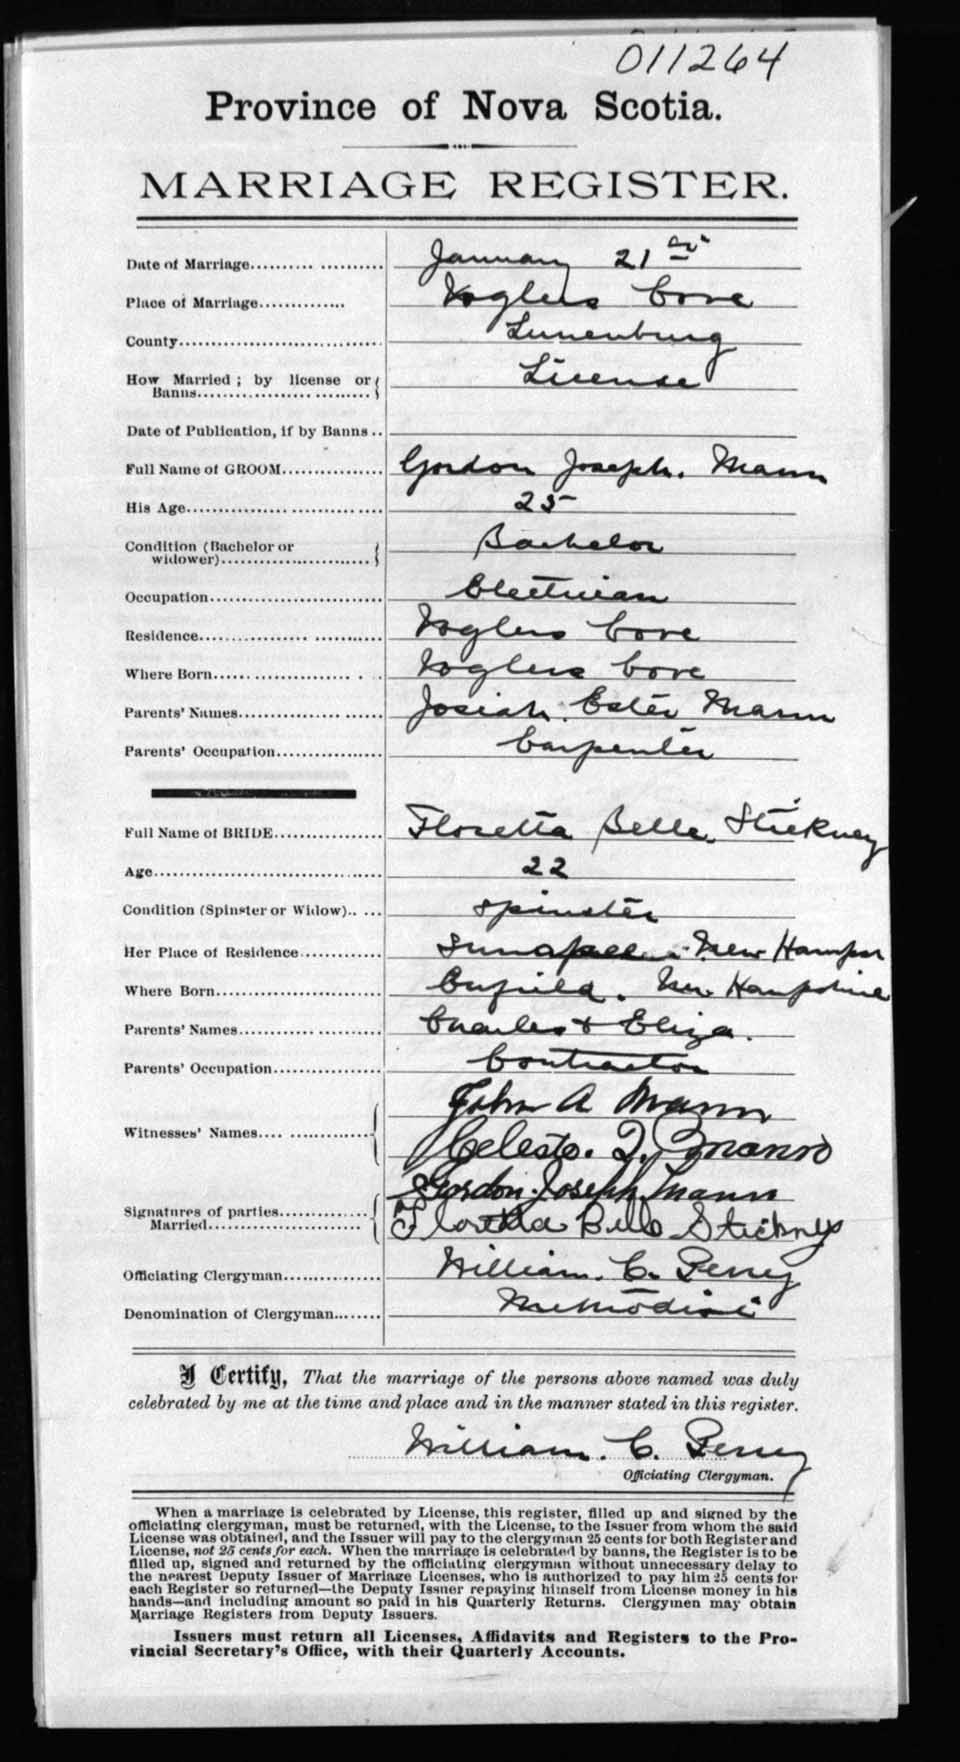 011264
Province of Nova Scotia.
MARRIAGE REGISTER.
Date of Marriage.................... January 21st
Place of Marriage............. Voglers Cove
County............................. Lunenburg
How Married ; by license or
Banns.................... License
Date of Publication, if by Banns..
Full Name of GROOM............... Gordon Joseph. Mann
His Age............................. 25
Condition (Bachelor or
widower)....................... Bachelor
Occupation......................... Electrician
Residence........................... Voglers Cove
Where Born...................... Voglers Cove
Parents' Names..................... Josiah. Ester Mann
Parents' Occupation................ Carpenter
Full Name of BRIDE................ Floretta Belle Stickney
Age.................................. 22
Condition (Spinster or Widow)..... Spinster
Her Place of Residence............ Sunapee. New Hampsr
Where Born........................ Enfield. New Hampshire
Parents' Names..................... Charles + Eliza.
Parents' Occupation................ Contractor
John A Mann
Witnesses' Names.................. Celeste.
Gordon Joseph Mann
Signatures of parties.............
Married....................... Belle Stickney
Officiating Clergyman.............. William. C. Perry
Denomination of Clergyman........ Methodist
I Certify, That the marriage of the persons above named was duly
celebrated by me at the time and place and in the manner stated in this register.
William. C. Perry
Officiating Clergyman.
When a marriage is celebrated by License, this register, filled up and signed by the
officiating clergyman, must be returned, with the License, to the Issuer from whom the said
License was obtained, and the Issuer will pay to the clergyman 25 cents for both Register and
License, not 25 cents for each. When the marriage is celebrated by banns, the Register is to be
filled up, signed and returned by the officiating clergyman without unnecessary delay to
the nearest Deputy Issuer of Marriage Licenses, who is authorized to pay him 25 cents for
each Register so returned—the Deputy Issuer repaying himself from License money in his
hands—and including amount so paid in his Quarterly Returns. Clergymen may obtain
Marriage Registers from Deputy Issuers.
Issuers must return all Licenses, Affidavits and Registers to the Pro-
vincial Secretary's Office, with their Quarterly Accounts.